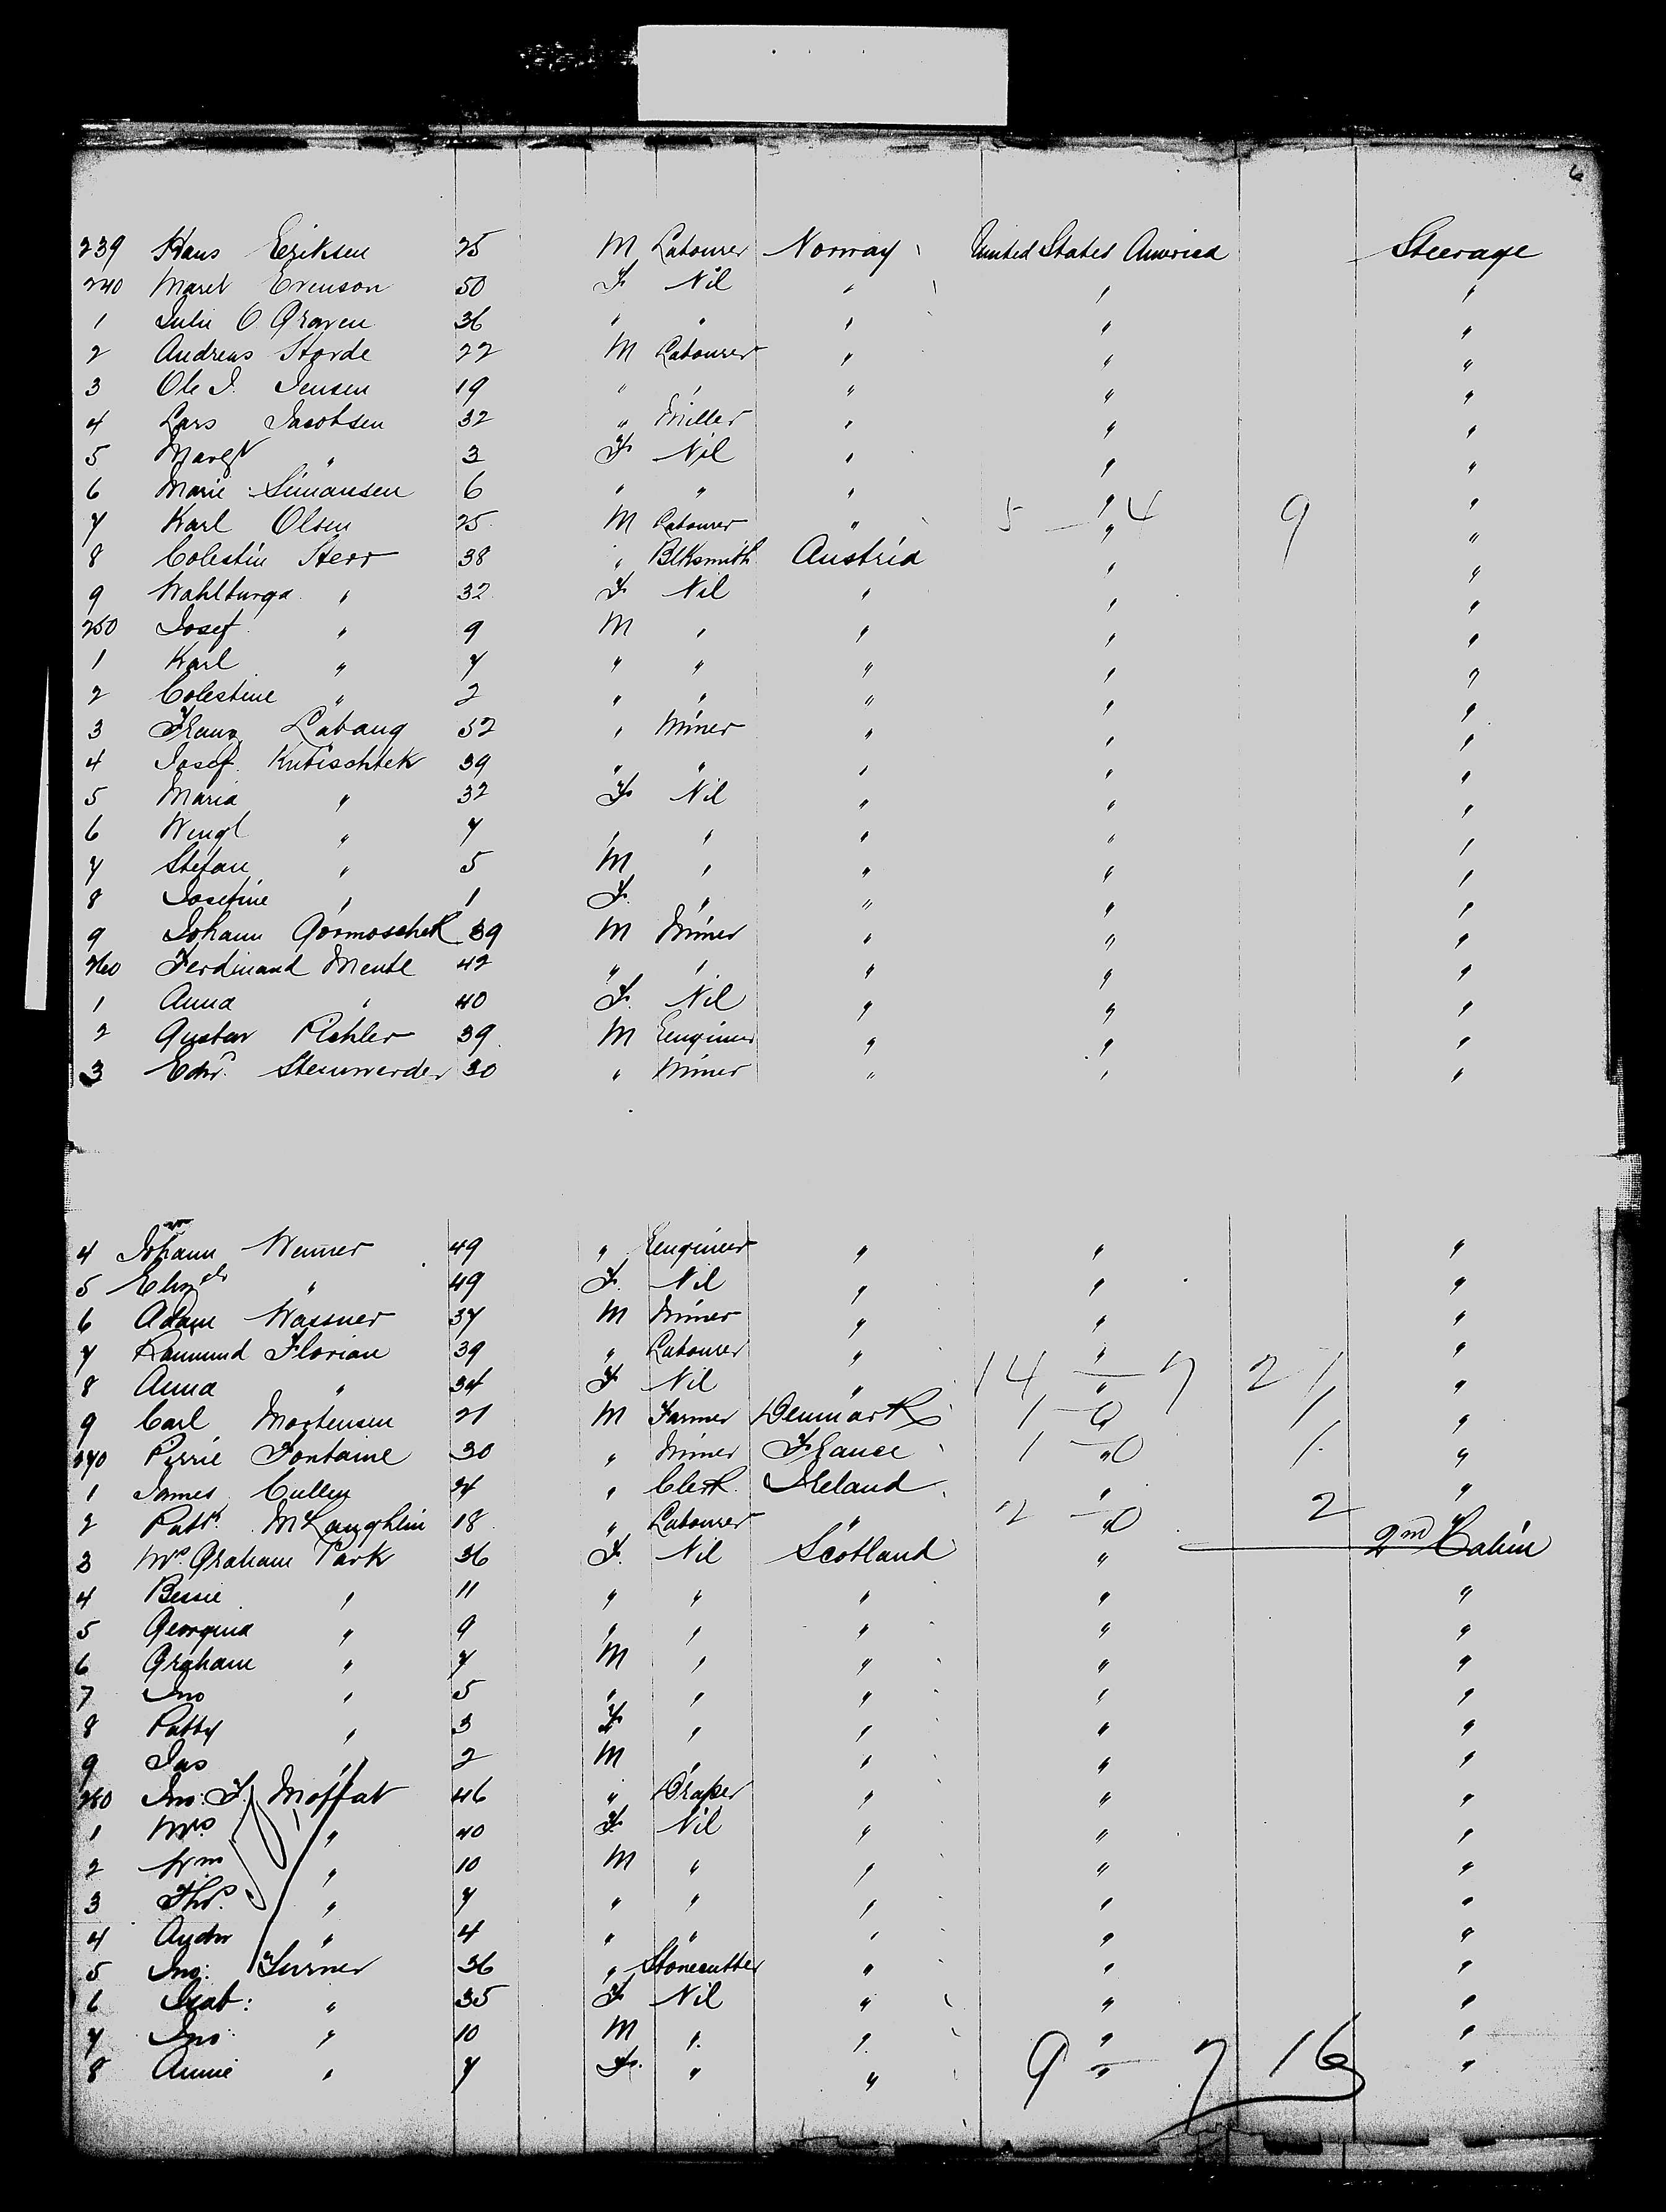 6
239 Hans Eriksen 25 M Labourer Norway United States America Steerage
240 Maret Evenson 50 F Nil " " "
1 Julie O. Graven 36 " " " " "
2 Andreas Storde 22 M Labourer " " "
3 Ole J. Jensen 19 " " " " "
4 Lars Jacobsen 32 " Miller " " "
5 Margt " 3 F Nil " " "
6 Marie Simonsen 6 " " " " "
7 Karl Olsen 25 M Labourer " 5 — 4 " 9 "
8 Colestin Sterr 38 " Blksmith Austria " "
9 Wahlburga " 32 F Nil " " "
250 Josef " 9 M " " " "
1 Karl " 7 " " " " "
2 Colestine " 2 " " " " "
3 Franz Labaug 52 " Miner " " "
4 Josef Kubischtek 39 " " " " "
5 Maria " 32 F Nil " " "
6 Wenzl " 7 " " " " "
7 Stefan " 5 M " " " "
8 Josefine " 1 F " " " "
9 Johann Gormoschek 39 M Miner " " "
260 Ferdinand Mentl 42 " " " " "
1 Anna " 40 F Nil " " "
2 Gustav Pichler 39 M Engineer " " "
3 Edwd Steinwerder 30 " Miner " " "
4 Johann Wenner 49 " Engineer " " "
5 Elizth " 49 F Nil " " "
6 Adam Wassner 37 M Miner " " "
7 Raimund Florian 39 " Labourer " " "
8 Anna " 34 F Nil " 14 — 7 " 21 "
9 Carl Mortensen 21 M Farmer Denmark 1 — 0 " 1 "
270 Pierrie Fontaine 30 " Miner France 1 — 0 " 1 "
1 James Cullen 24 " Clerk Ireland " "
2 Patk McLaughlin 18 " Labourer " 2 — 0 " 2 "
3 Mrs Graham Park 36 F Nil Scotland " 2nd Cabin
4 Bessie " 11 " " " " "
5 Georgina " 9 " " " " "
6 Graham " 7 M " " " "
7 Jno " 5 " " " " "
8 Patty " 3 F " " " "
9 Jas " 2 M " " " "
280 Jno: F. Moffat 46 " Draper " " "
1 Mrs " 40 F Nil " " "
2 Wm " 10 M " " " "
3 Thos " 7 " " " " "
4 Andw " 4 " " " " "
5 Jno: Turner 36 " Stonecutter " " "
6 Isab: " 35 F Nil " " "
7 Jno: " 10 M " " " "
8 Annie " 7 F " " 9 — 7 " 16 "